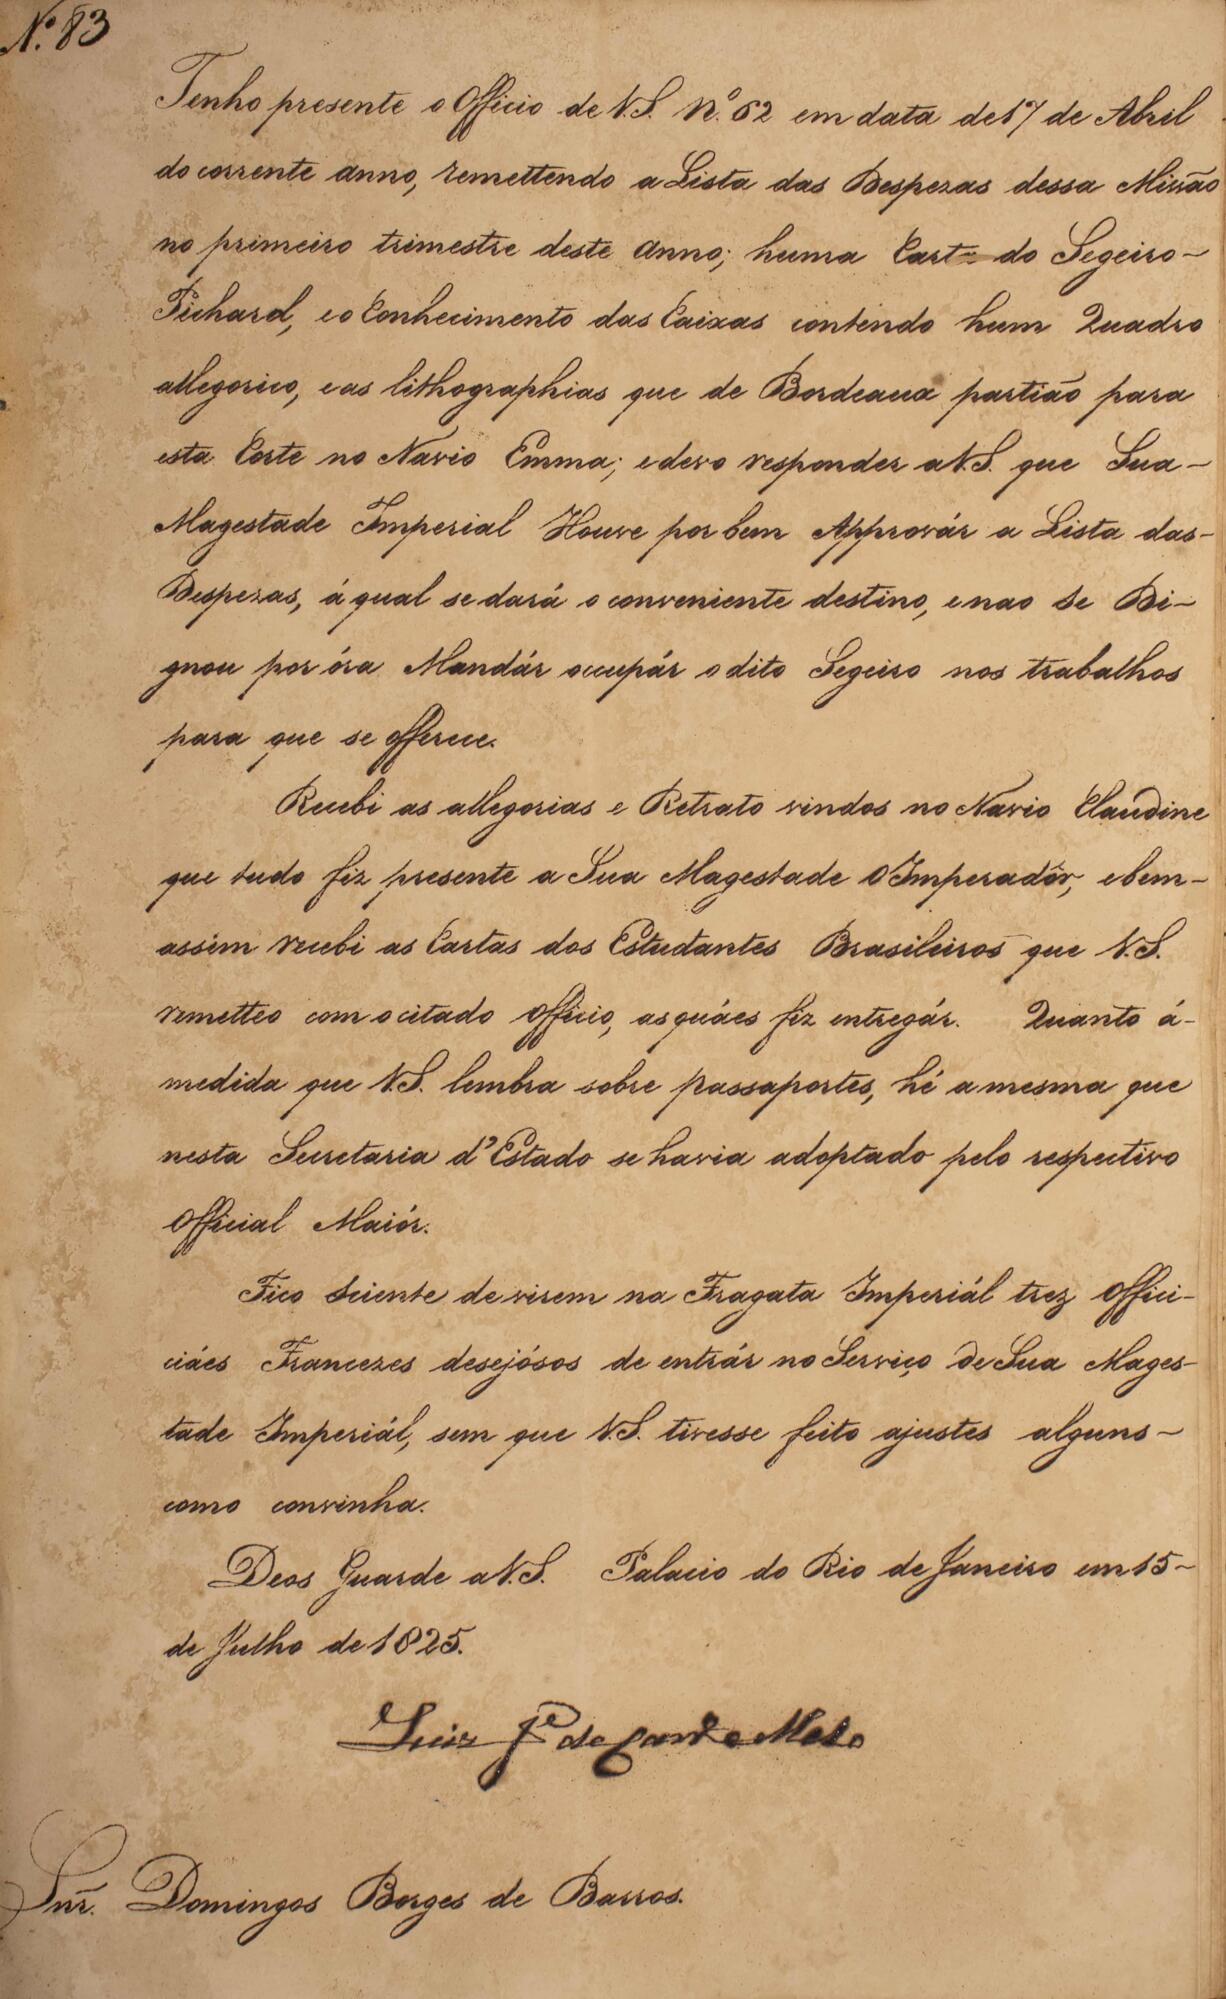 N.º 83
Tenho presente o Officio de V.S. N.º 62 em data de 17 de Abril
do corrente anno, remettendo a Lista das Despezas dessa Missão
no primeiro trimestre deste anno; huma Carta do Segeiro-
Pichard, e o Conhecimento das Caixas contendo hum Quadro
allegorico, e as lithographias que de Bordeaux partião para
esta Corte no Navio Emma; e devo responder a V.S. que Sua-
Magestade Imperial Houve por bem Approvár a Lista das-
Despezas, á qual se dará o conveniente destino, e nao Se Di-
gnou por óra Mandár occupár o dito Segeiro nos trabalhos
para que se offerece.
Recebi as allegorias e Retrato vindos no Navio Claudine
que tudo fiz presente a Sua Magestade O Imperadôr, e bem-
assim recebi as Cartas dos Estudantes Brasileiros que V.S.
remetteo com o citado Officio, as quáes fiz entregár. Quanto á-
medida que V.S. lembra sobre passaportes, hé a mesma que
nesta Secretaria d'Estado se havia adoptado pelo respectivo
Official Maiór.
Fico sciente de virem na Fragata Imperiál trez Offici-
ciáes Francezes desejósos de entrár no Serviço de Sua Mages-
tade Imperiál, sem que V.S. tivesse feito ajustes alguns-
como convinha.
Deos Guarde a V.S. Palacio do Rio de Janeiro em 15-
de Julho de 1825.
Luiz Jº de Carvº e Mello
Snr. Domingos Borges de Barros.